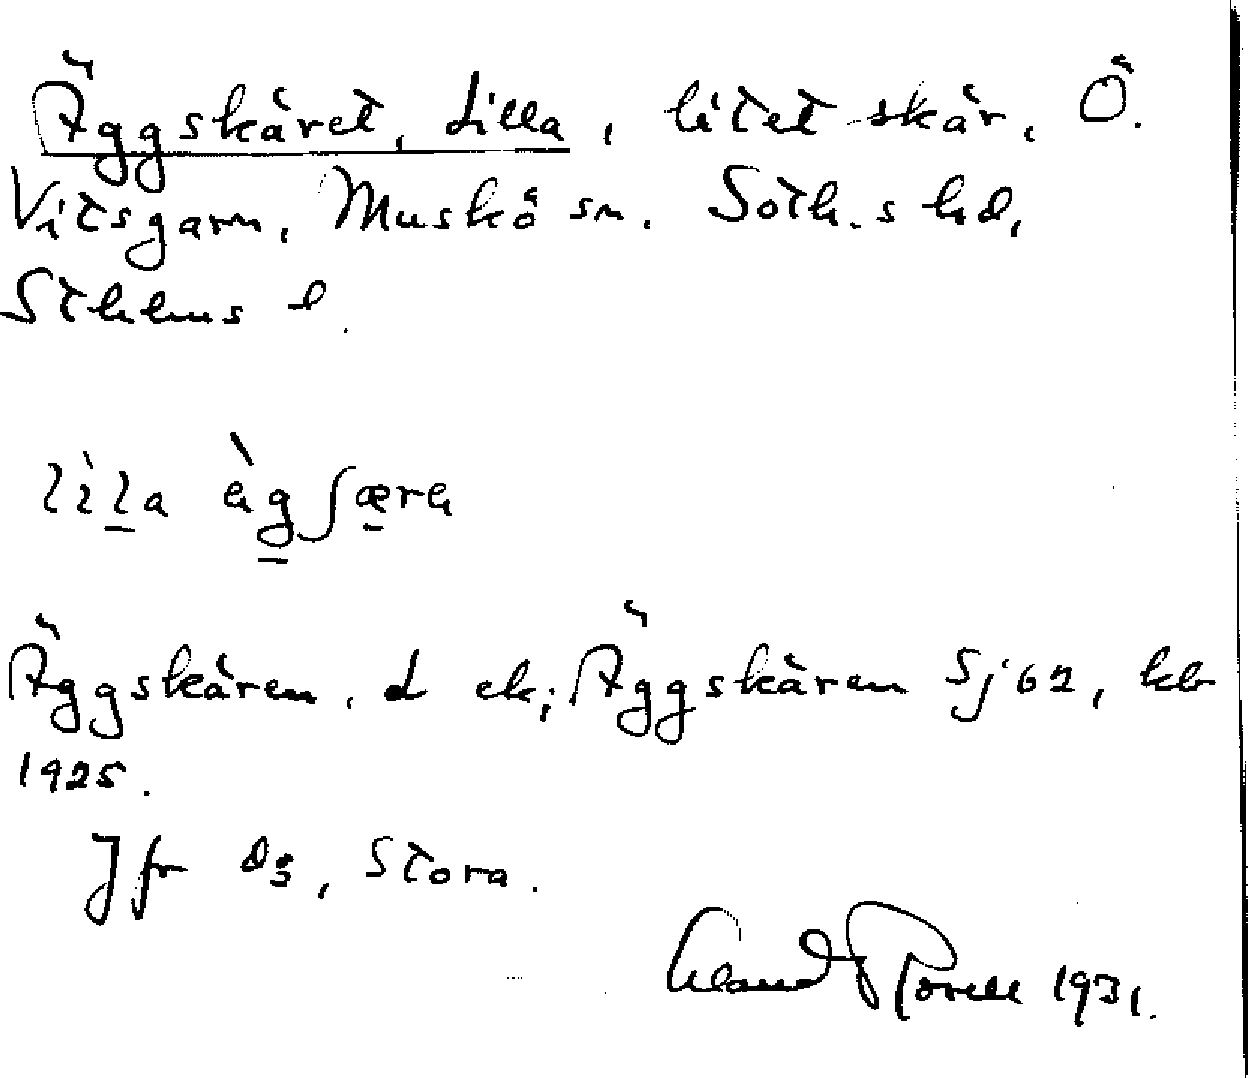 Äggskäret, Lilla, litet skär, Ö.
Vitsgarn, Muskö sn. Soth.s hd,
Sthlms l.
lìla ägʃæra
Äggskären, L ek; Äggskären Sj 62, kb
1925.
Jfr d:o, Stora.
1931.